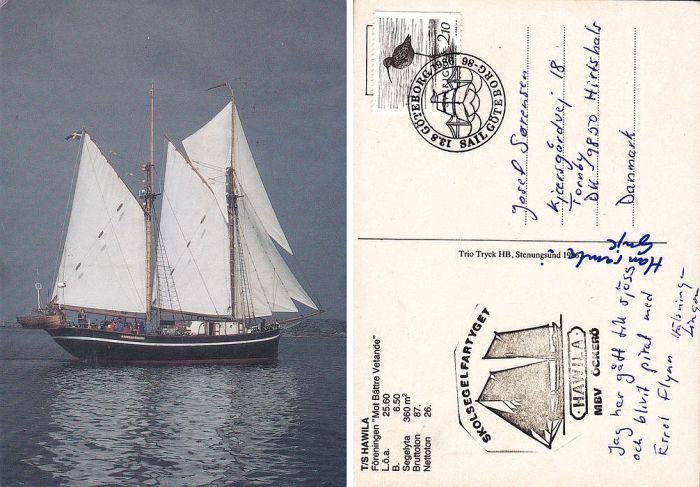 2.10
SVERIGE
13.8 GÖTEBORG 1986 SAIL GÖTEBORG-86
Josef Sørensen
Kjærsgårdvej 18
Tornby
DK 9850 Hirtshals
Danmark
Trio Tryck HB, Stenungsund
T/S HAWILA
Föreningen "Mot Bättre Vetande"
L.ö.a. 25.60
B. 6.50
Segelyta 360 m²
Bruttoton 87.
Nettoton 26.
SKOLSEGELFARTYGET
HAWILA
MBV ÖCKERÖ
Jag har gått till sjöss
och blivit pirat med
Errol Flynn